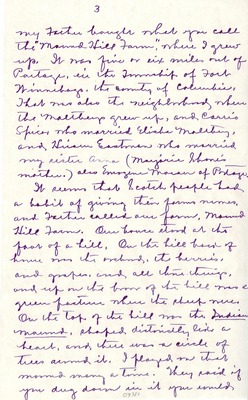 3
my Father bought what you call
the "Mound Hill Farm", where I grew
up. It was five or six miles out of
Portage, in the Township of Fort
Winnebago, the county of Columbia.
That was also the neighborhood where
the Maltbeys grew up, and Carrie
Spicer who married Elisha Maltbey,
and Hiram Eastman who married
my sister Anna (Marjorie Shone's
mother.) also Imogene Mosein of Portage.
It seems that Scotch people had
a habit of giving their farms names,
and Father called our farm, Mound
Hill Farm. Our house stood at the
foot of a hill. On the hill back of
house was the orchard, the berries,
and grapes and, all those things,
and up on the brow of the hill was a
green pasture where the sheep were.
On the top of the hill was the Indian
mound, shaped distinctly like a
heart, and there was a circle of
trees around it. I played on that
mound many a time. They said if
you dug down in it you would